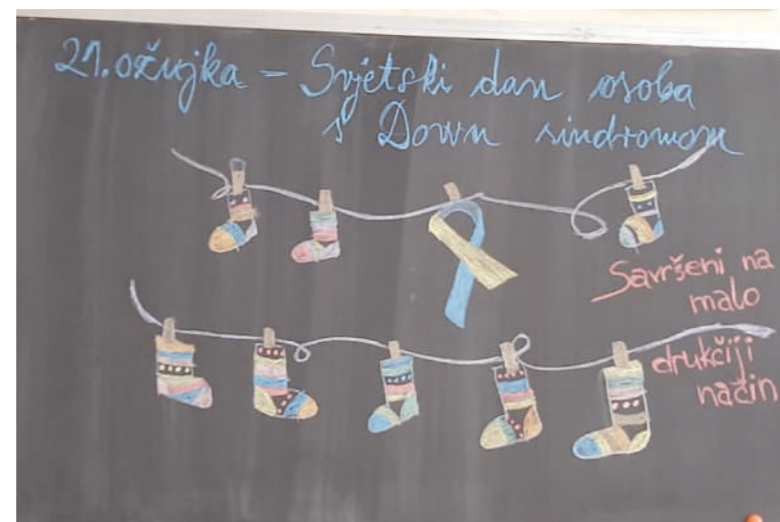 21. ožujka - Svjetski dan osoba
s Down sindromom
Savršeni na
malo
drukčiji
način